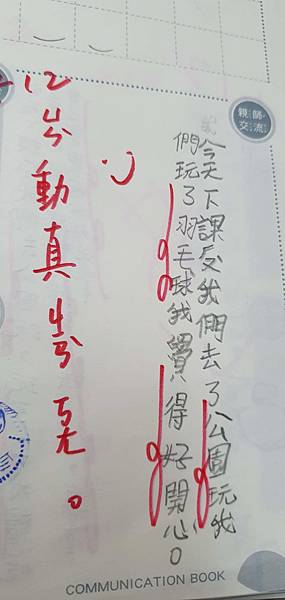 親師交流
今天下課後我們去了公園玩我
們玩了羽毛球我覺得好開心。
動真
COMMUNICATION BOOK